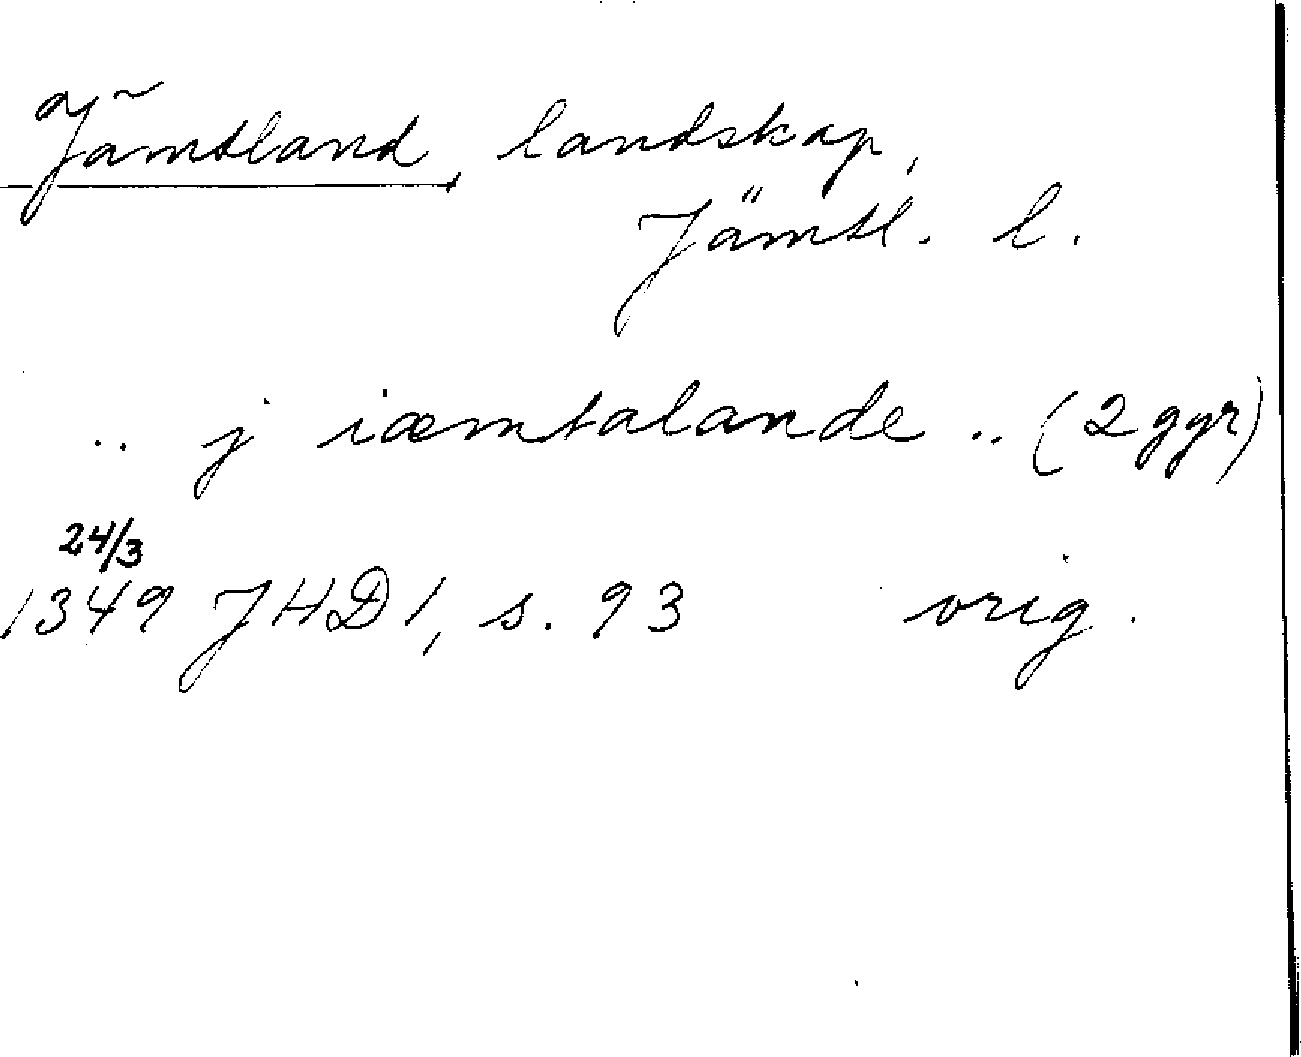 Jämtland, landskap,
Jämtl. l.
.. j iæmtalande .. (2 ggr)
24/3
1349 JHD 1, s. 93 orig.